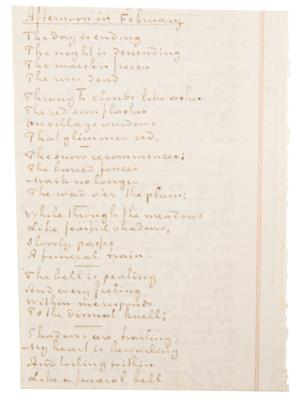 Afternoon in February
The day is ending
The night is descending
The marsh is frozen
The river dead
Through clouds like ashes
The red sun flashes
On village windows
That glimmer red.
The snow recommences;
The buried fences
Mark no longer
The road o'er the plain;
While through the meadows
Like fearful shadows,
Slowly passes
A funeral train.
The bell is pealing
And every feeling
Within me responds
To the dismal knell;
Shadows are trailing,
My heart is bewailing
And tolling within
Like a funeral bell